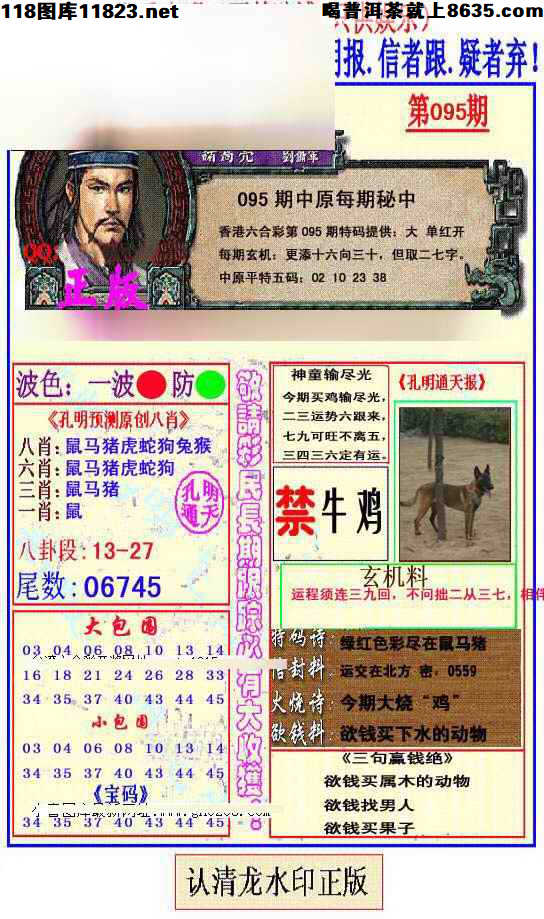 118图库11823.net
喝普洱茶就上8635.com
明报.信者跟.疑者弃!
第095期
諸葛亮 劉備軍
095 期中原每期秘中
香港六合彩第 095 期特码提供：大 单红开
每期玄机：更添十六向三十，但取二七字。
中原平特五码：02 10 23 38
正版
波色：一波 防
《孔明预测原创八肖》
八肖：鼠马猪虎蛇狗兔猴
六肖：鼠马猪虎蛇狗
三肖：鼠马猪
一肖：鼠
孔明
通天
八卦段：13-27
尾数：06745
大包围
03 04 06 08 10 13 14
16 18 21 24 26 28 33
34 35 37 40 43 44 45
小包围
03 04 06 08 10 13 14
34 35 37 40 43 44 45
《宝码》
34 35 37 40 43 44 45
敬請彩民長期跟踪必有大收獲
神童输尽光
今期买鸡输尽光，
二三运势六跟来，
七九可旺不离五，
三四三六定有运。
《孔明通天报》
禁 牛鸡
玄机料
运程须连三九回，不问拙二从三七，相伴
特码诗：绿红色彩尽在鼠马猪
信封料：运交在北方 密，0559
火烧诗：今期大烧“鸡”
欲钱料：欲钱买下水的动物
《三句赢钱绝》
欲钱买属木的动物
欲钱找男人
欲钱买果子
认清龙水印正版